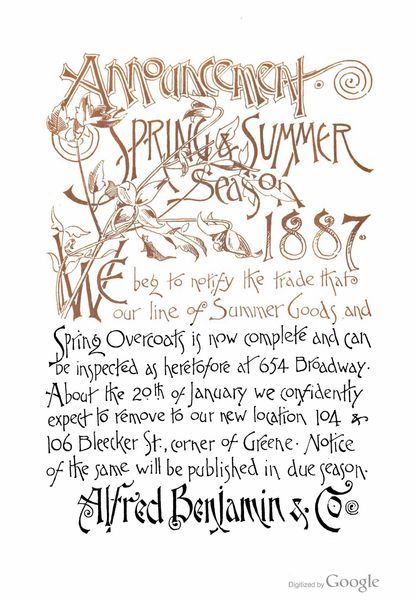 Announcement.
Spring & Summer
Season
1887.
We beg to notify the trade that
our line of Summer Goods and
Spring Overcoats is now complete and can
be inspected as heretofore at 654 Broadway.
About the 20th of January we confidently
expect to remove to our new location 104 &
106 Bleecker St., corner of Greene. Notice
of the same will be published in due season.
Alfred Benjamin & Co
Digitized by Google